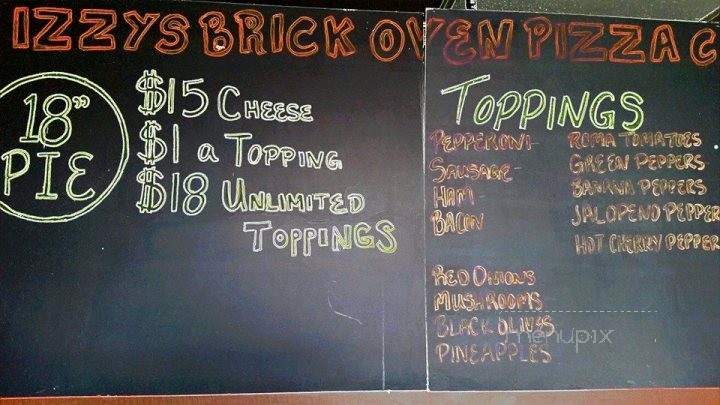 IZZYS BRICK OVEN PIZZA C
18" PIE
$15 CHEESE
$1 a TOPPING
$18 UNLIMITED
TOPPINGS
TOPPINGS
PEPPERONI-
SAUSAGE-
HAM-
BACON
RED ONIONS
MUSHROOMS
BLACK OLIVES
PINEAPPLES
ROMA TOMATOES
GREEN PEPPERS
BANANA PEPPERS
JALOPENO PEPPER
HOT CHERRY PEPPER
menupix